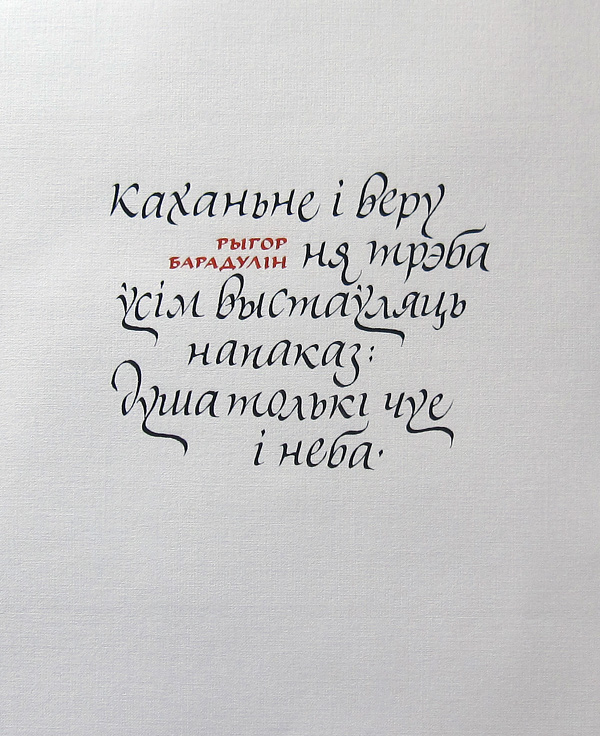 Каханьне і веру
РЫГОР
БАРАДУЛІН
ня трэба
ўсім выстаўляць
напаказ:
Душа толькі чуе
і неба.